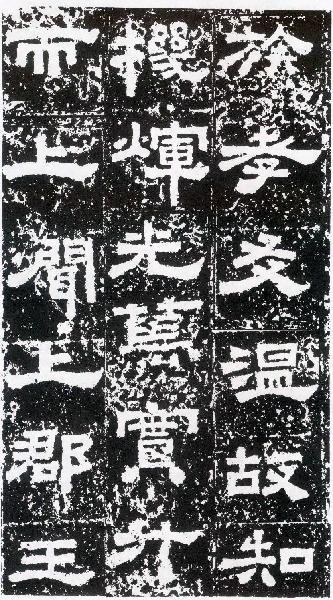 族孝友温故知
機煇光篤實升
而上聞上郡王